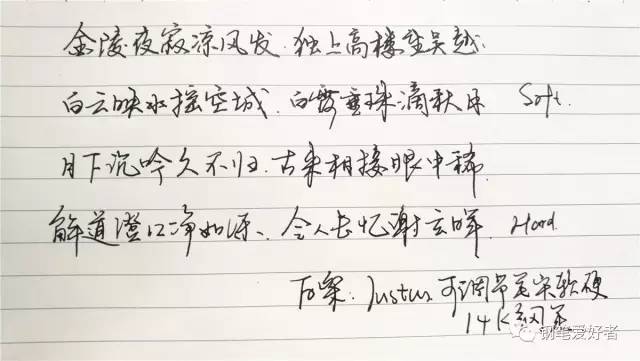 金陵夜寂凉风发.独上高楼望吴越.
白云映水摇空城.白露垂珠滴秋月 Soft.
月下沉吟久不归.古来相接眼中稀.
解道澄江净如练、令人长忆谢玄晖. Hard
Justus 可调节尖软硬
14K
钢笔爱好者